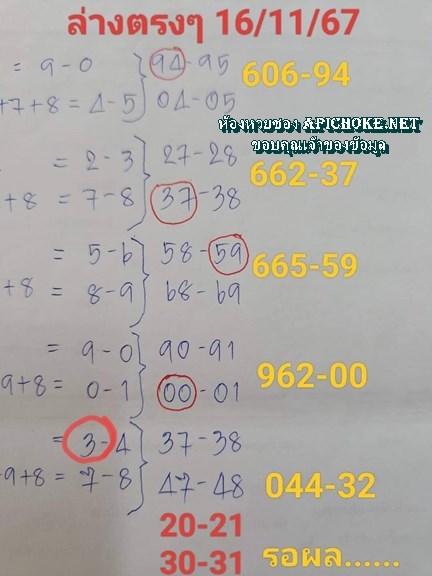 ล่างตรงๆ 16/11/67
= 9-0 } 94-95 606-94
+7+8 = 4-5 } 04-05
ห้องหวยซอง APICHOKE.NET
ขอบคุณเจ้าของข้อมูล
= 2-3 } 27-28 662-37
+8 = 7-8 } 37-38
= 5-6 } 58-59 665-59
+8 = 8-9 } 68-69
= 9-0 } 90-91
9+8 = 0-1 } 00-01 962-00
= 3-4 } 37-38
-9+8 = 7-8 } 47-48 044-32
20-21
30-31 รอผล......